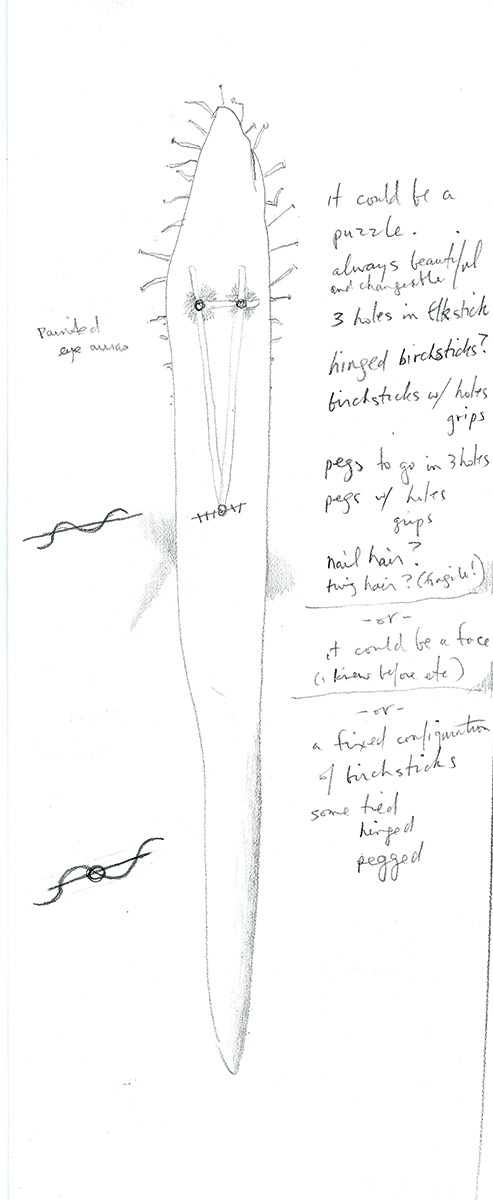 it could be a
puzzle.
always beautiful
and changeable
3 holes in Elkstick
hinged birchsticks?
birchsticks w/ holes
grips
pegs to go in 3 holes
pegs w/ holes
grips
nail hair?
twig hair? (fragile!)
- or -
it could be a face
(i knew before etc)
- or -
a fixed configuration
of birchsticks
some tied
hinged
pegged
Painted
eye auras